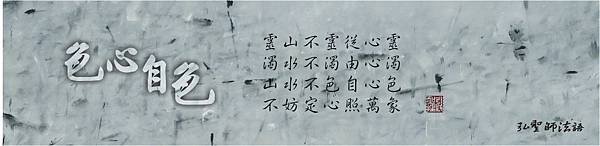 色自心色
靈山不靈從心靈
濁水不濁由心濁
山水不色自心色
不妨定心照萬象
弘聖師法語